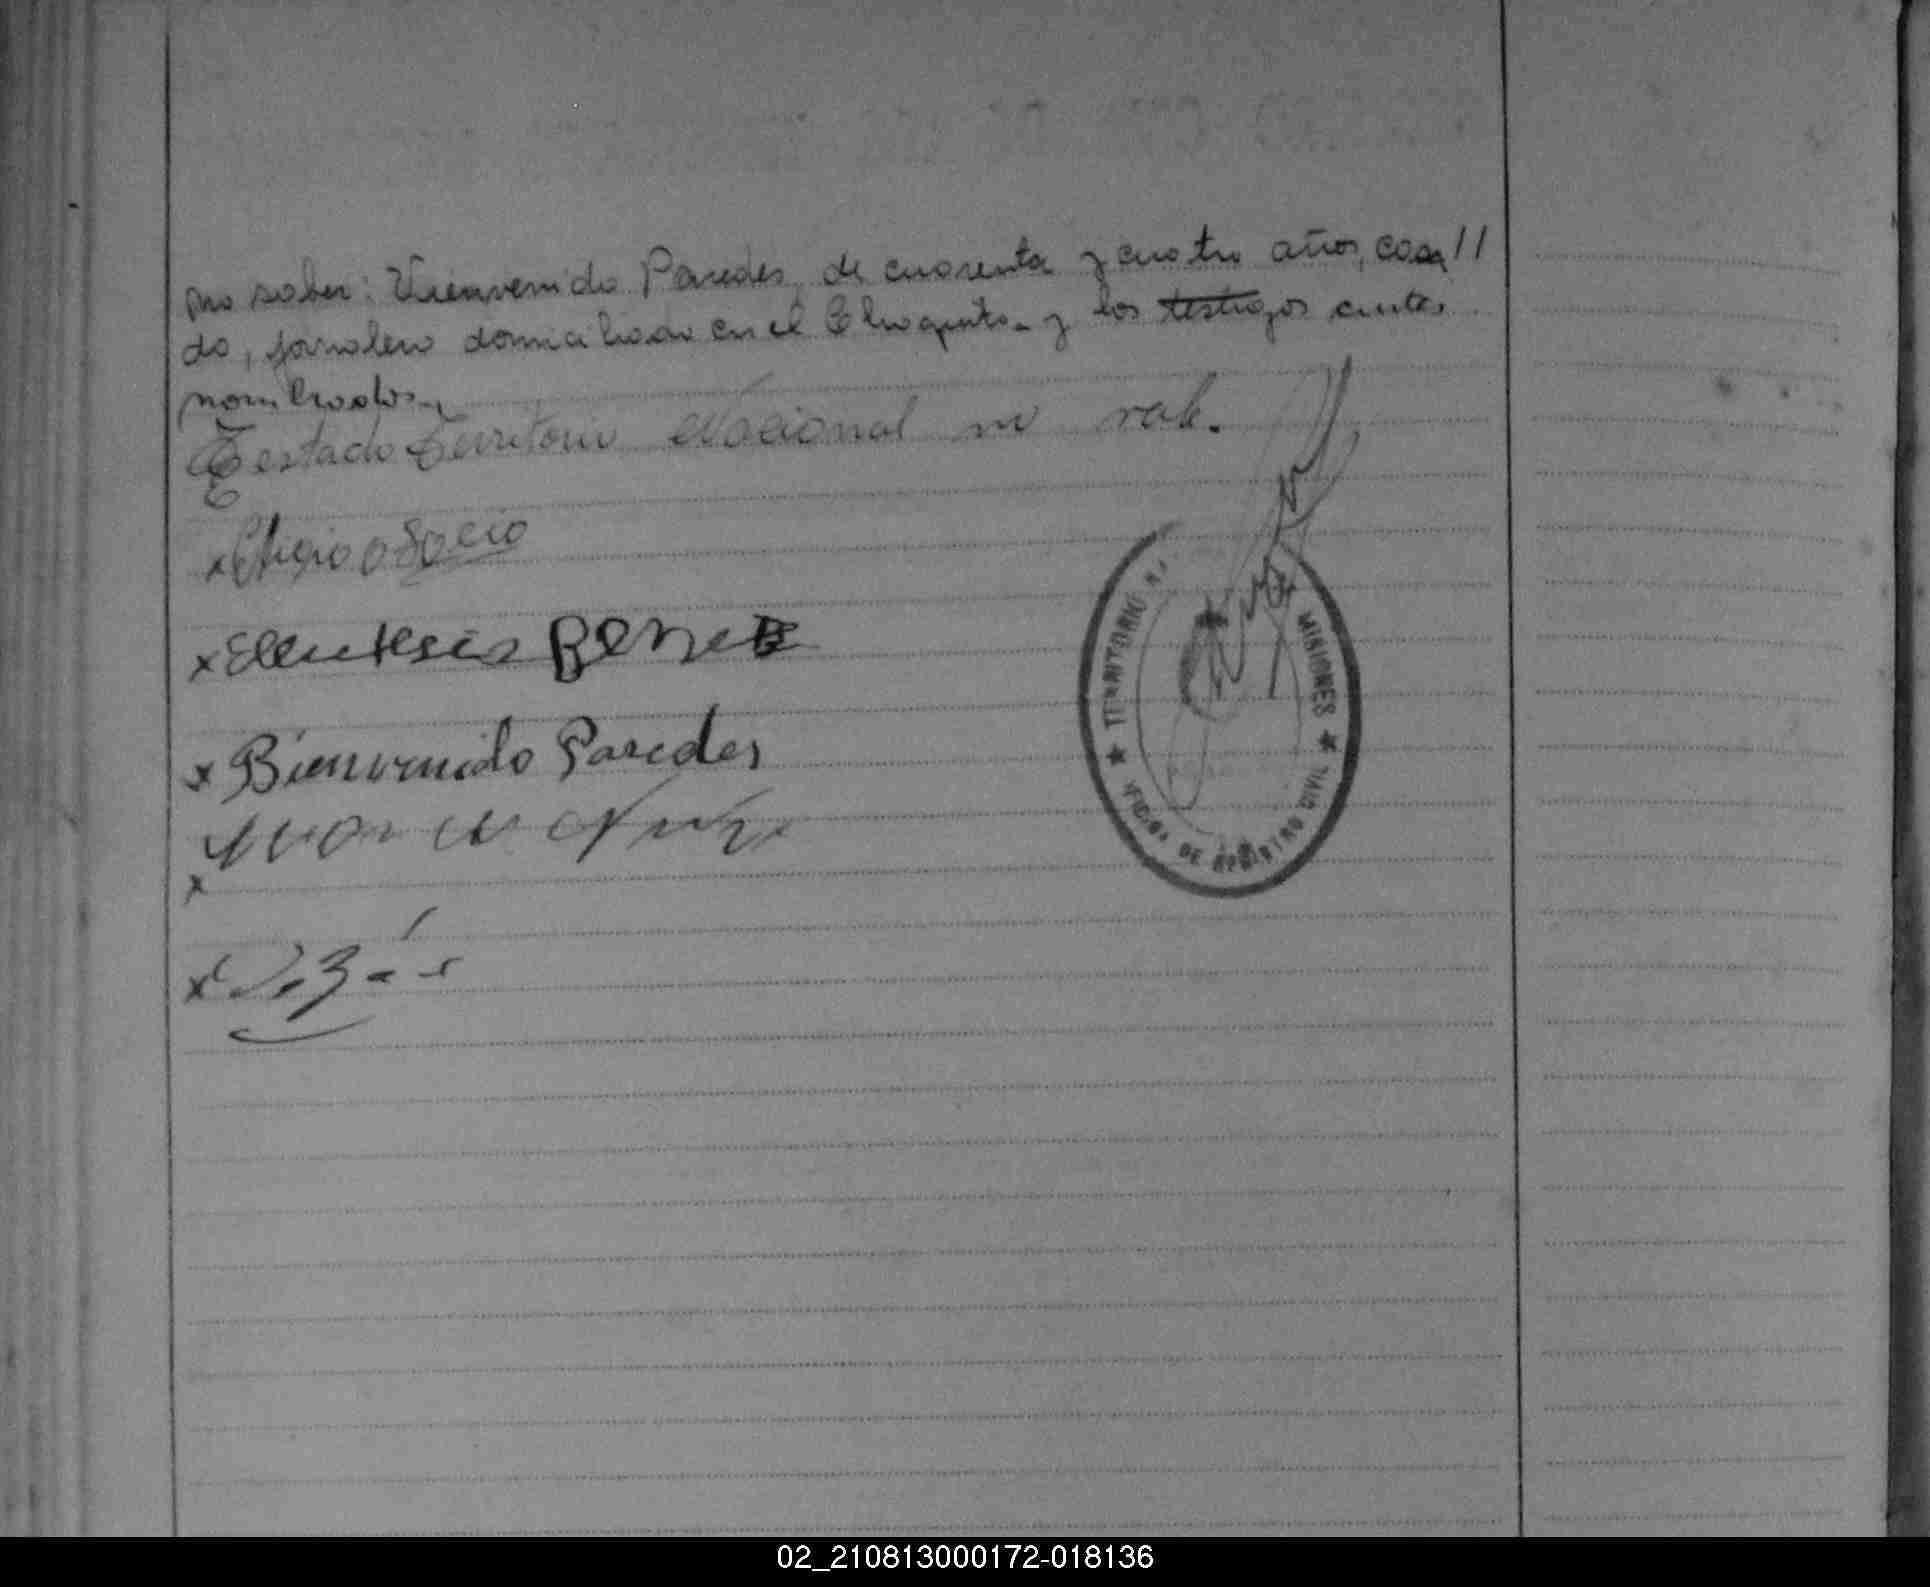 no saber: Vienvenido Paredes, de cuarenta y cuatro años, casa//
do, jornalero domiciliado en el Chaquito y los testigos ante
nombrados.
Testado Territorio Nacional no vale.
x Eligio Osocio
x Eleuterio Benitez
x Bienvenido Paredes
x
x
★ TERRITORIO N. MISIONES ★
OFICINA DE REGISTRO CIVIL
02_210813000172-018136